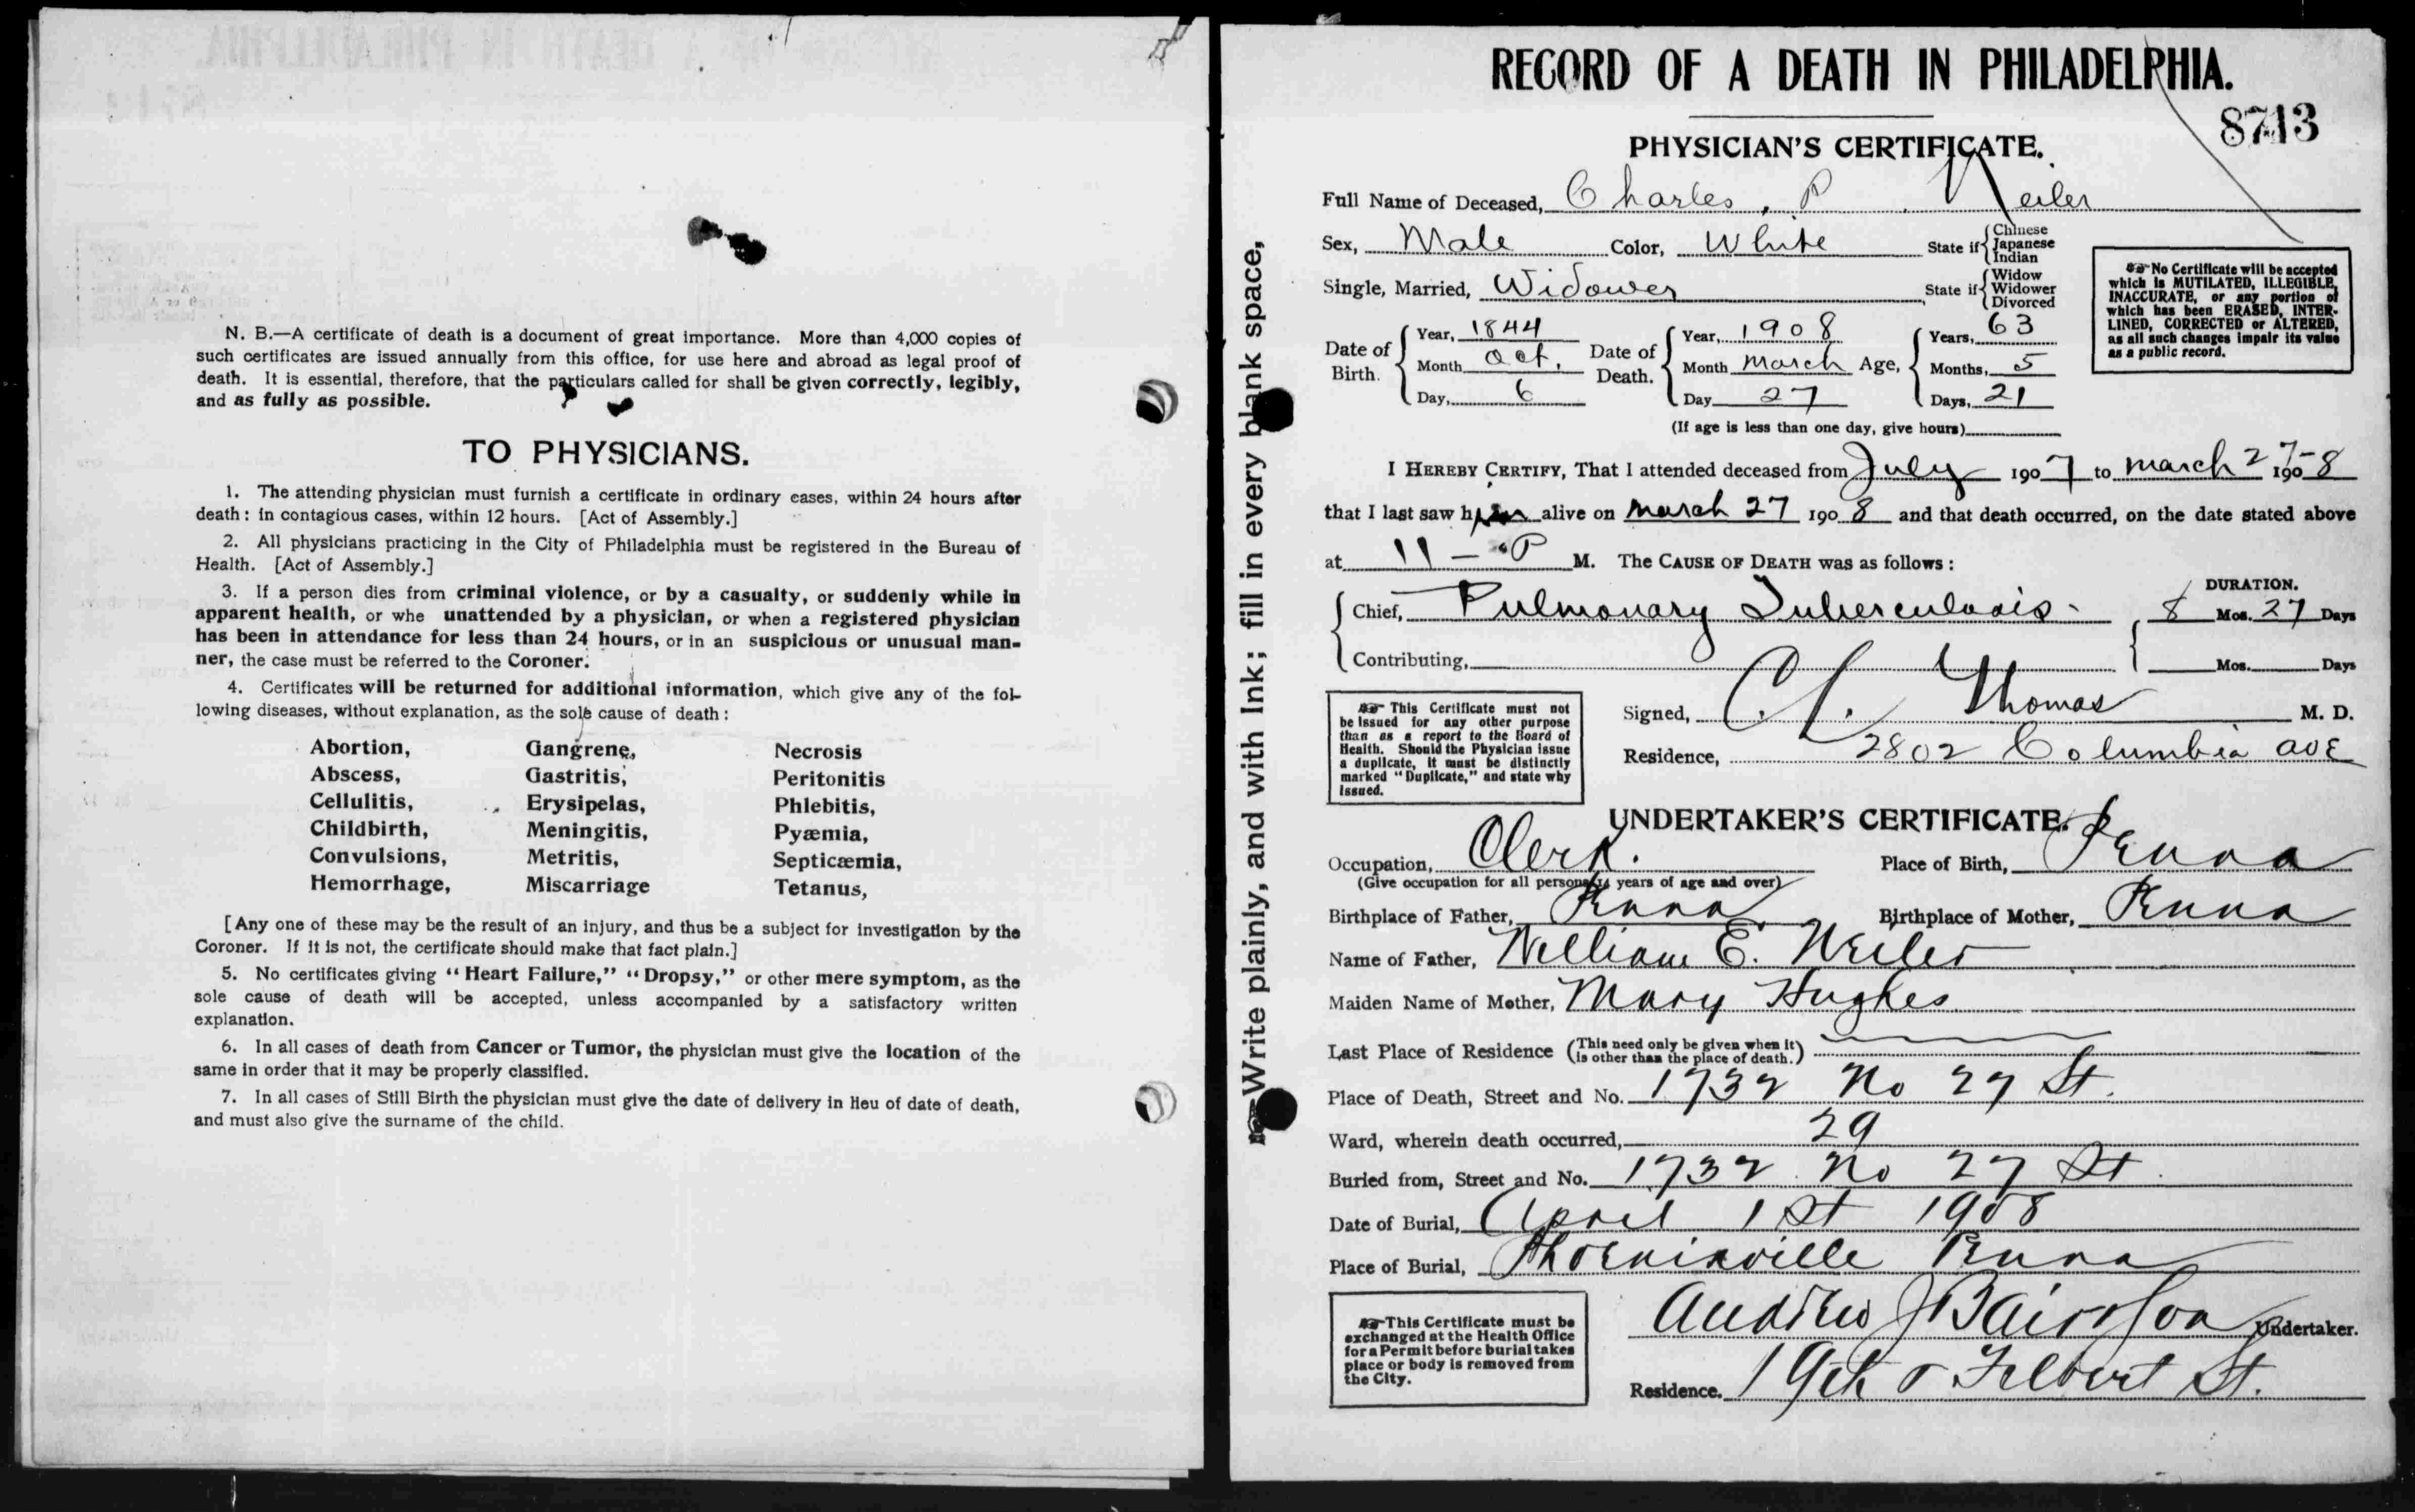 N. B.—A certificate of death is a document of great importance. More than 4,000 copies of
such certificates are issued annually from this office, for use here and abroad as legal proof of
death. It is essential, therefore, that the particulars called for shall be given correctly, legibly,
and as fully as possible.
TO PHYSICIANS.
1. The attending physician must furnish a certificate in ordinary cases, within 24 hours after
death: in contagious cases, within 12 hours. [Act of Assembly.]
2. All physicians practicing in the City of Philadelphia must be registered in the Bureau of
Health. [Act of Assembly.]
3. If a person dies from criminal violence, or by a casualty, or suddenly while in
apparent health, or whe unattended by a physician, or when a registered physician
has been in attendance for less than 24 hours, or in an suspicious or unusual man-
ner, the case must be referred to the Coroner.
4. Certificates will be returned for additional information, which give any of the fol-
lowing diseases, without explanation, as the sole cause of death:
Abortion, Gangrene, Necrosis
Abscess, Gastritis, Peritonitis
Cellulitis, Erysipelas, Phlebitis,
Childbirth, Meningitis, Pyæmia,
Convulsions, Metritis, Septicæmia,
Hemorrhage, Miscarriage Tetanus,
[Any one of these may be the result of an injury, and thus be a subject for investigation by the
Coroner. If it is not, the certificate should make that fact plain.]
5. No certificates giving "Heart Failure," "Dropsy," or other mere symptom, as the
sole cause of death will be accepted, unless accompanied by a satisfactory written
explanation.
6. In all cases of death from Cancer or Tumor, the physician must give the location of the
same in order that it may be properly classified.
7. In all cases of Still Birth the physician must give the date of delivery in lieu of date of death,
and must also give the surname of the child.
Write plainly, and with Ink; fill in every blank space,
RECORD OF A DEATH IN PHILADELPHIA.
8713
PHYSICIAN'S CERTIFICATE.
Full Name of Deceased, Charles P Neiler
Sex, Male Color, White State if { Chinese Japanese Indian
Single, Married, Widower State if { Widow Widower Divorced
No Certificate will be accepted
which is MUTILATED, ILLEGIBLE,
INACCURATE, or any portion of
which has been ERASED, INTER-
LINED, CORRECTED or ALTERED,
as all such changes impair its value
as a public record.
Date of Birth. { Year, 1844 Month Oct. Day, 6
Date of Death. { Year, 1908 Month March Day 27
Age, { Years, 63 Months, 5 Days, 21
(If age is less than one day, give hours)
I HEREBY CERTIFY, That I attended deceased from July 1907 to March 27 1908
that I last saw him alive on March 27 1908 and that death occurred, on the date stated above
at 11 — P M. The CAUSE OF DEATH was as follows:
DURATION.
Chief, Pulmonary Tuberculosis - 8 Mos. 27 Days
Contributing, Mos. Days
This Certificate must not
be issued for any other purpose
than as a report to the Board of
Health. Should the Physician issue
a duplicate, it must be distinctly
marked "Duplicate," and state why
issued.
Signed, Thomas M. D.
Residence, 2802 Columbia ave
UNDERTAKER'S CERTIFICATE.
Occupation, Clerk. Place of Birth, Penna
(Give occupation for all persons 14 years of age and over)
Birthplace of Father, Penna Birthplace of Mother, Penna
Name of Father, William E. Neiler
Maiden Name of Mother, Mary Hughes
Last Place of Residence (This need only be given when it is other than the place of death.)
Place of Death, Street and No. 1732 No 27 St.
Ward, wherein death occurred, 29
Buried from, Street and No. 1732 No 27 St
Date of Burial, April 1st 1908
Place of Burial, Phoenixville Penna
This Certificate must be
exchanged at the Health Office
for a Permit before burial takes
place or body is removed from
the City.
Andrew J Bair & Son Undertaker.
Residence. 19th & Filbert St.